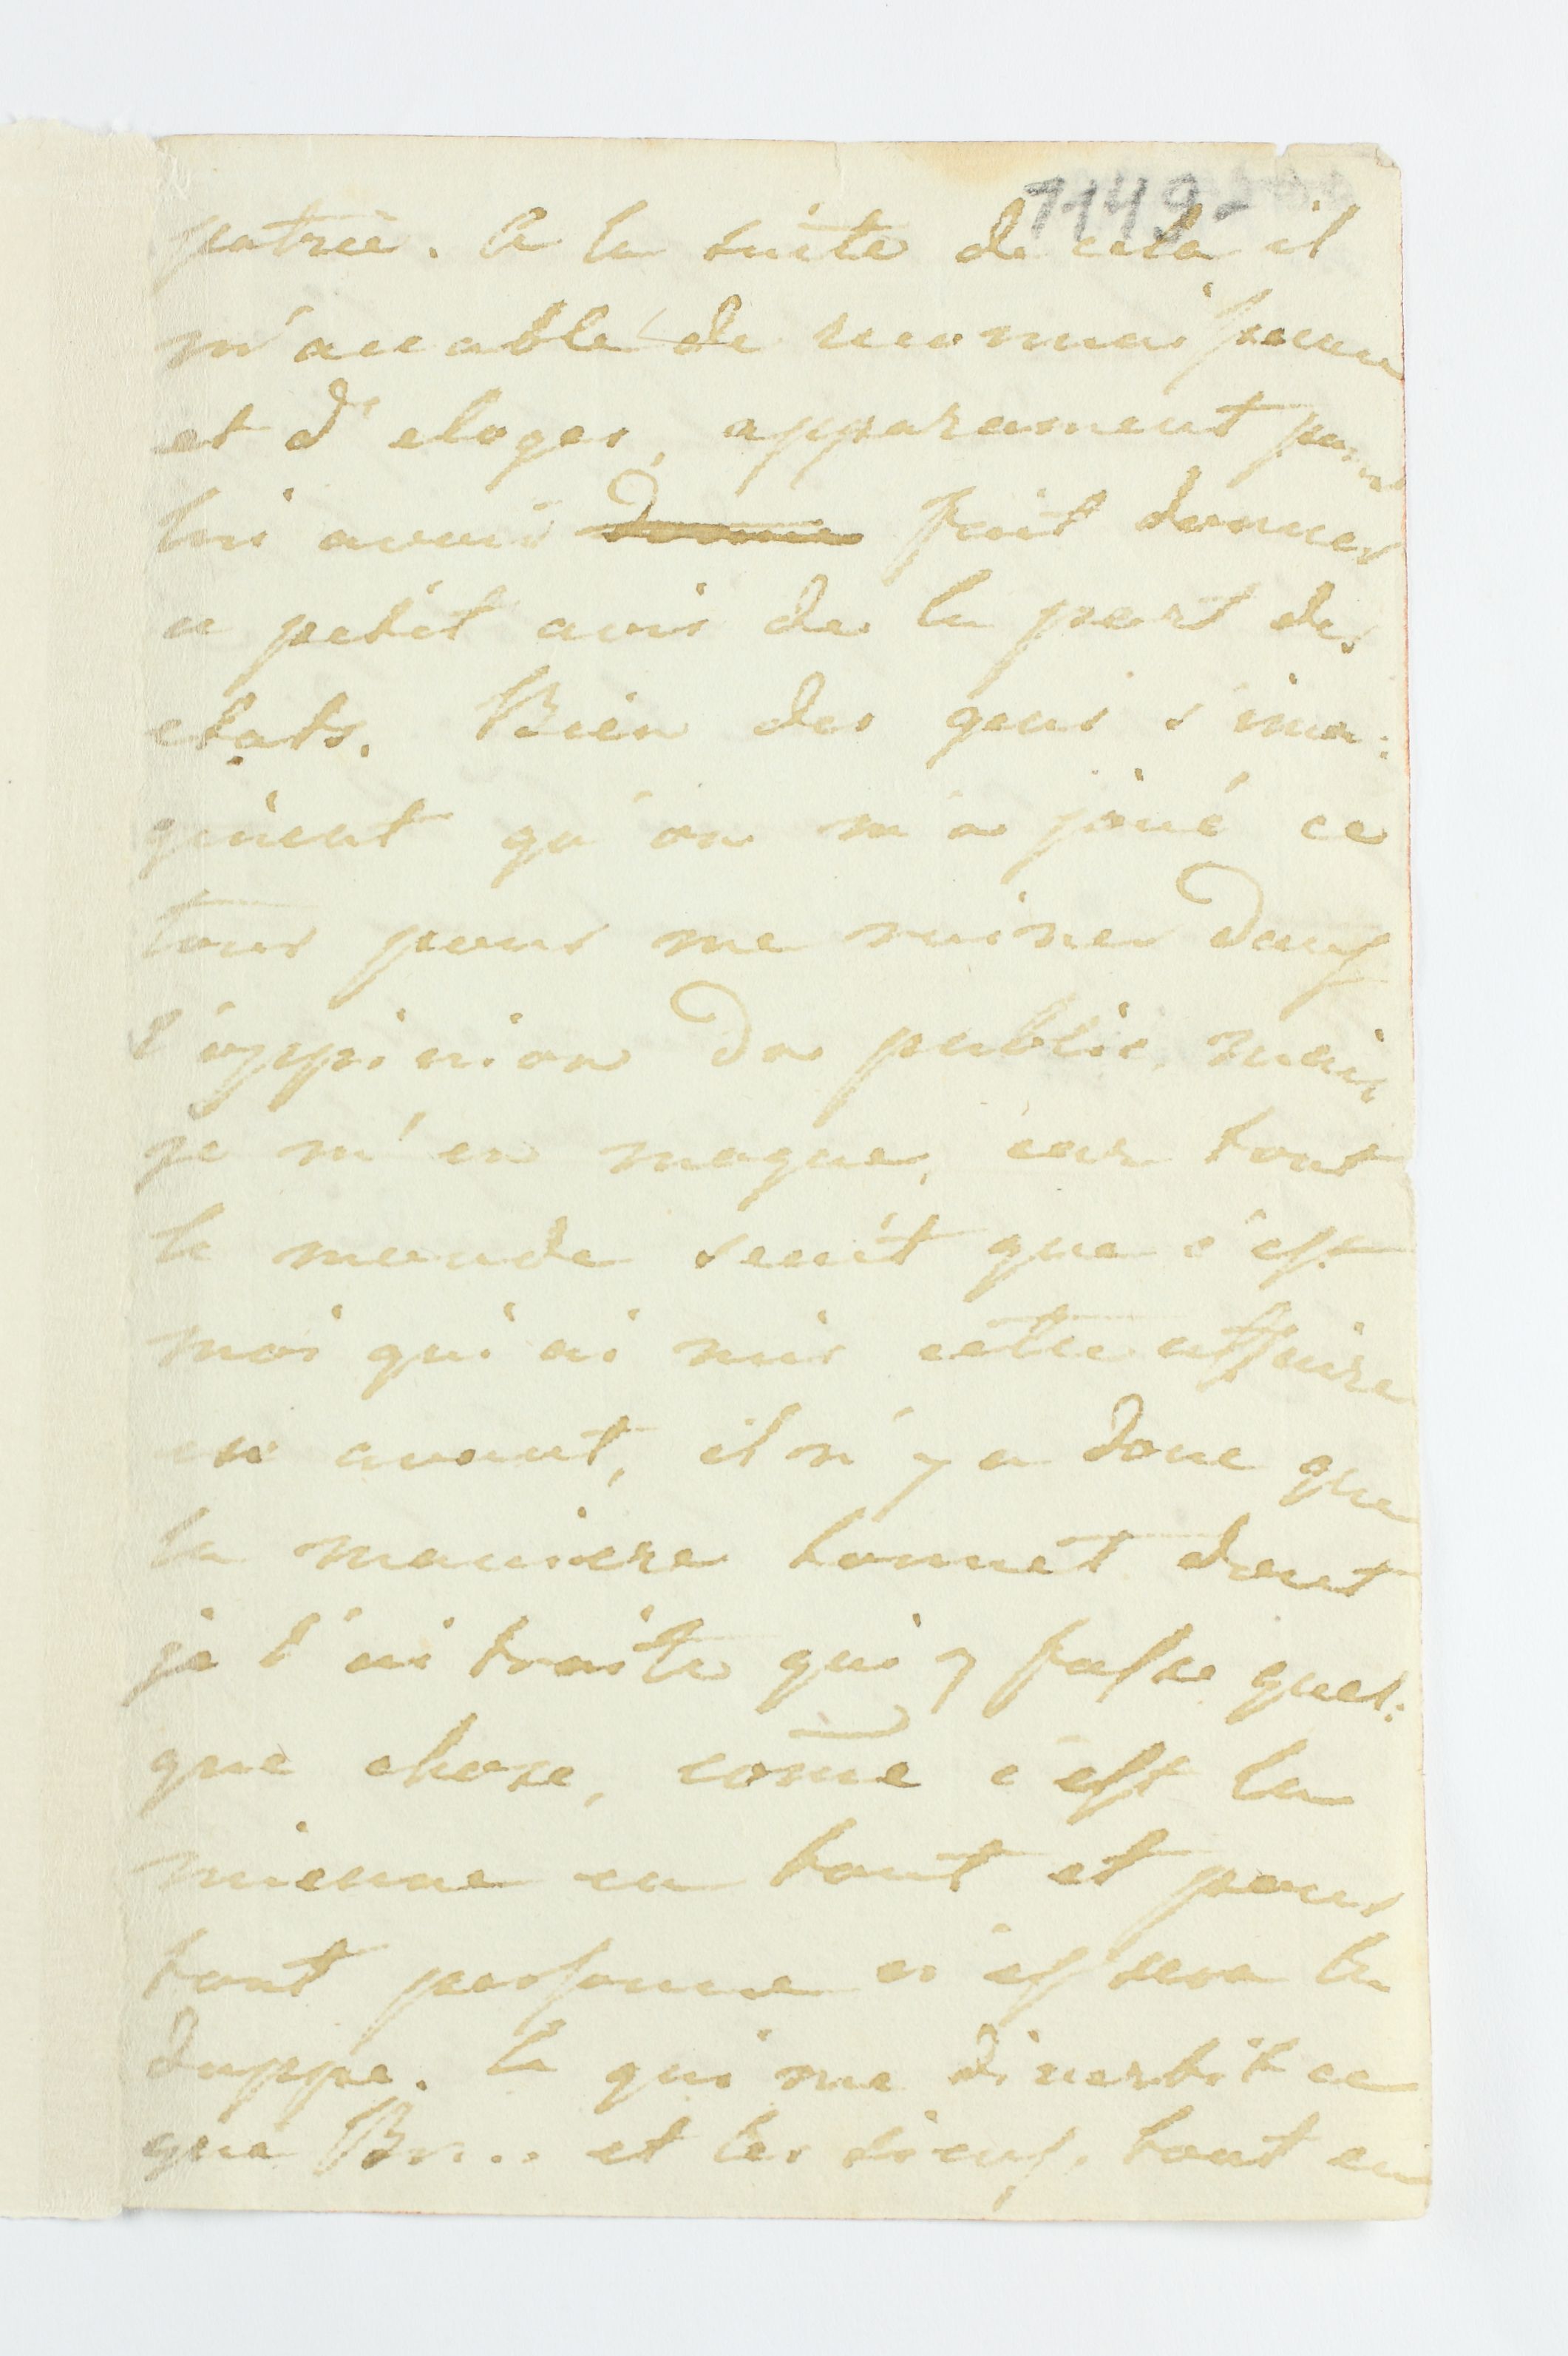 7149-
patrie. A la suite de cela il
m'accable de reconnaissance
et d'eloges, apparament pour
lui avoir donné fait donner
u petit avis de la part des
etats. Bien des gens s'ima:
ginent qu'on m'a joué ce
tour pour me ruiner dans
l'oppinion du public, mais
je m'en moque, car tout
le monde sent que c'est
moi qui ai mis cette affaire
en avant, il n'y a donc que
la maniere honnet dont
je l'ai traite qui y fasse quel:
que chose, come c'est la
mienne en tout et pour
tout personne n'en sera la
duppe. Ce qui me divertit ce
que Bn.. et les siens, tout en